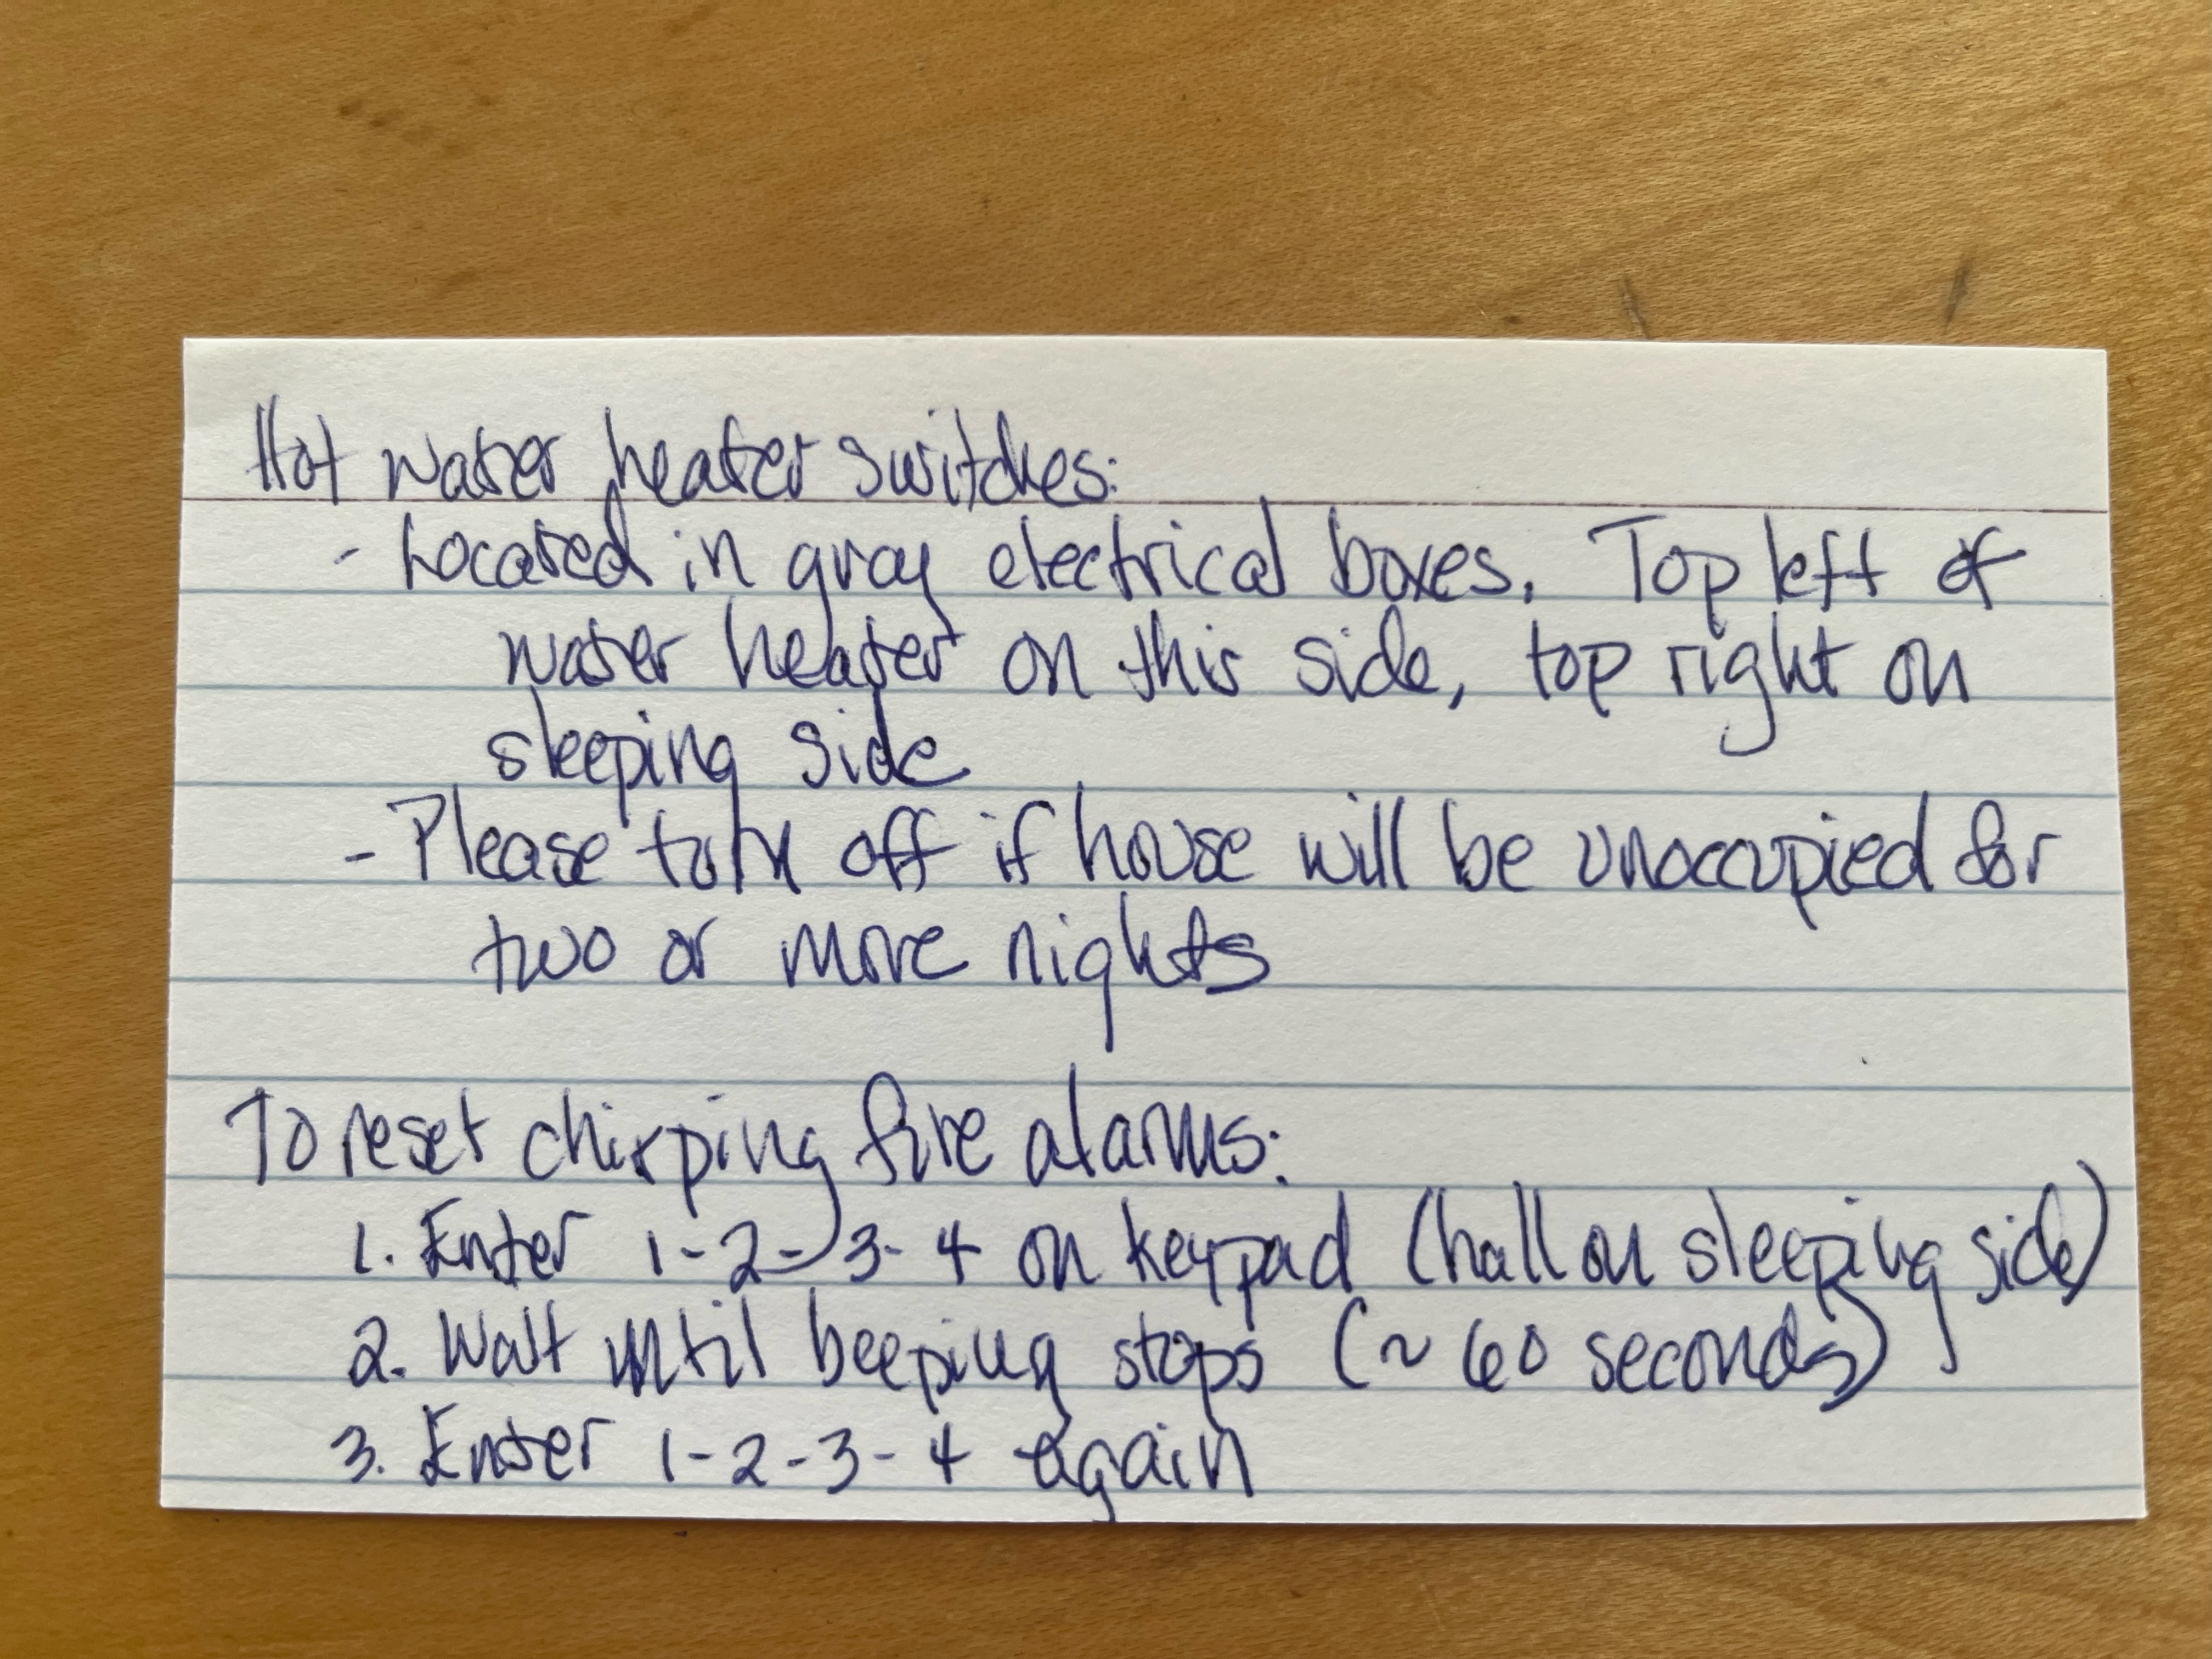 Hot water heater switches:
- Located in gray electrical boxes. Top left of
water heater on this side, top right on
sleeping side
- Please turn off if house will be unoccupied for
two or more nights
To reset chirping fire alarms:
1. Enter 1-2-3-4 on keypad (hall on sleeping side)
2. Wait until beeping stops (~60 seconds)
3. Enter 1-2-3-4 again